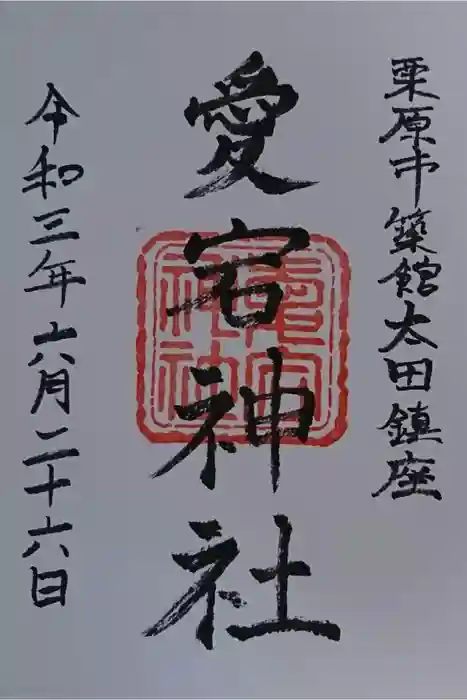 栗原市築館太田鎮座
愛宕神社
愛宕神社
令和三年六月二十六日